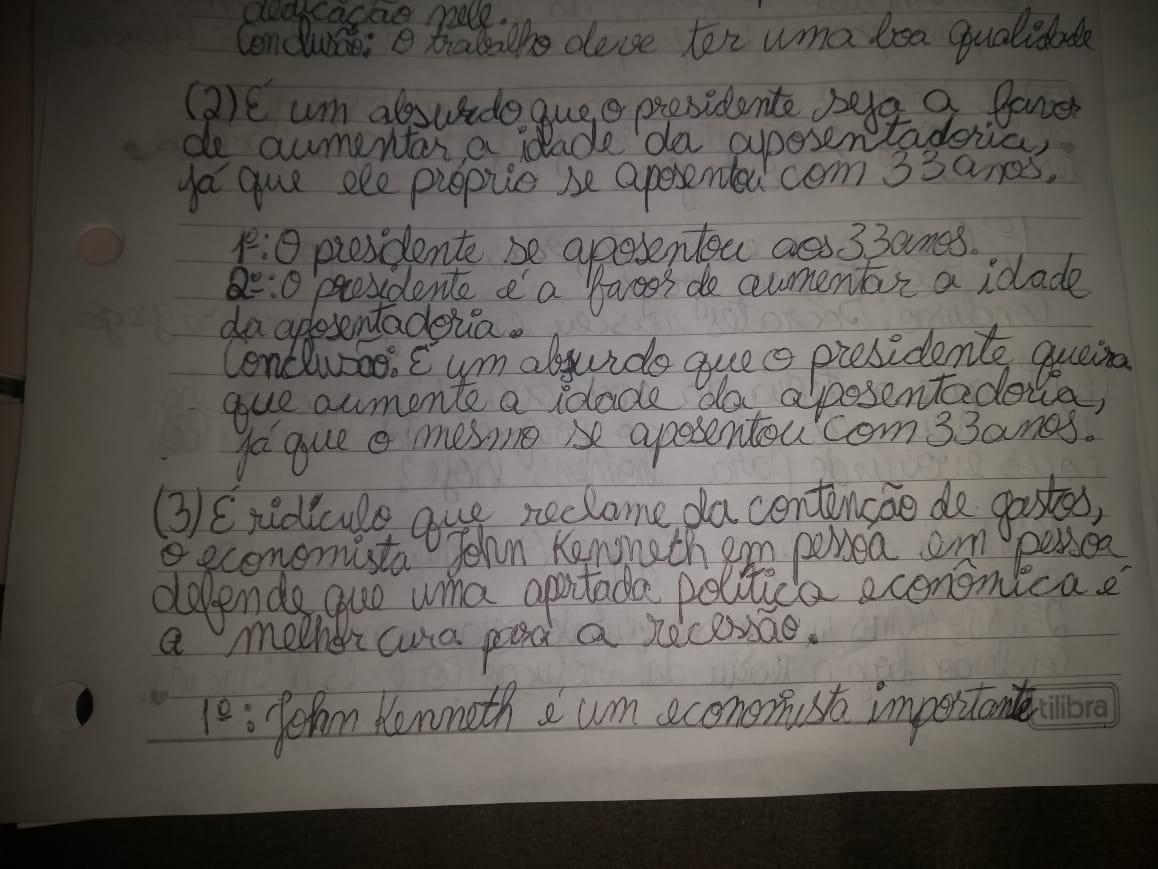 dedicação nele.
Conclusão: O trabalho deve ter uma boa qualidade
(2) É um absurdo que o presidente seja a favor
de aumentar a idade da aposentadoria,
já que ele próprio se aposentou com 33 anos.
1º: O presidente se aposentou aos 33 anos.
2º: O presidente é a favor de aumentar a idade
da aposentadoria.
Conclusão: É um absurdo que o presidente queira
que aumente a idade da aposentadoria,
já que o mesmo se aposentou com 33 anos.
(3) É ridículo que reclame da contenção de gastos,
o economista John Kenneth em pessoa em pessoa
defende que uma apertada política econômica é
a melhor cura para a recessão.
1º: John Kenneth é um economista importante
tilibra